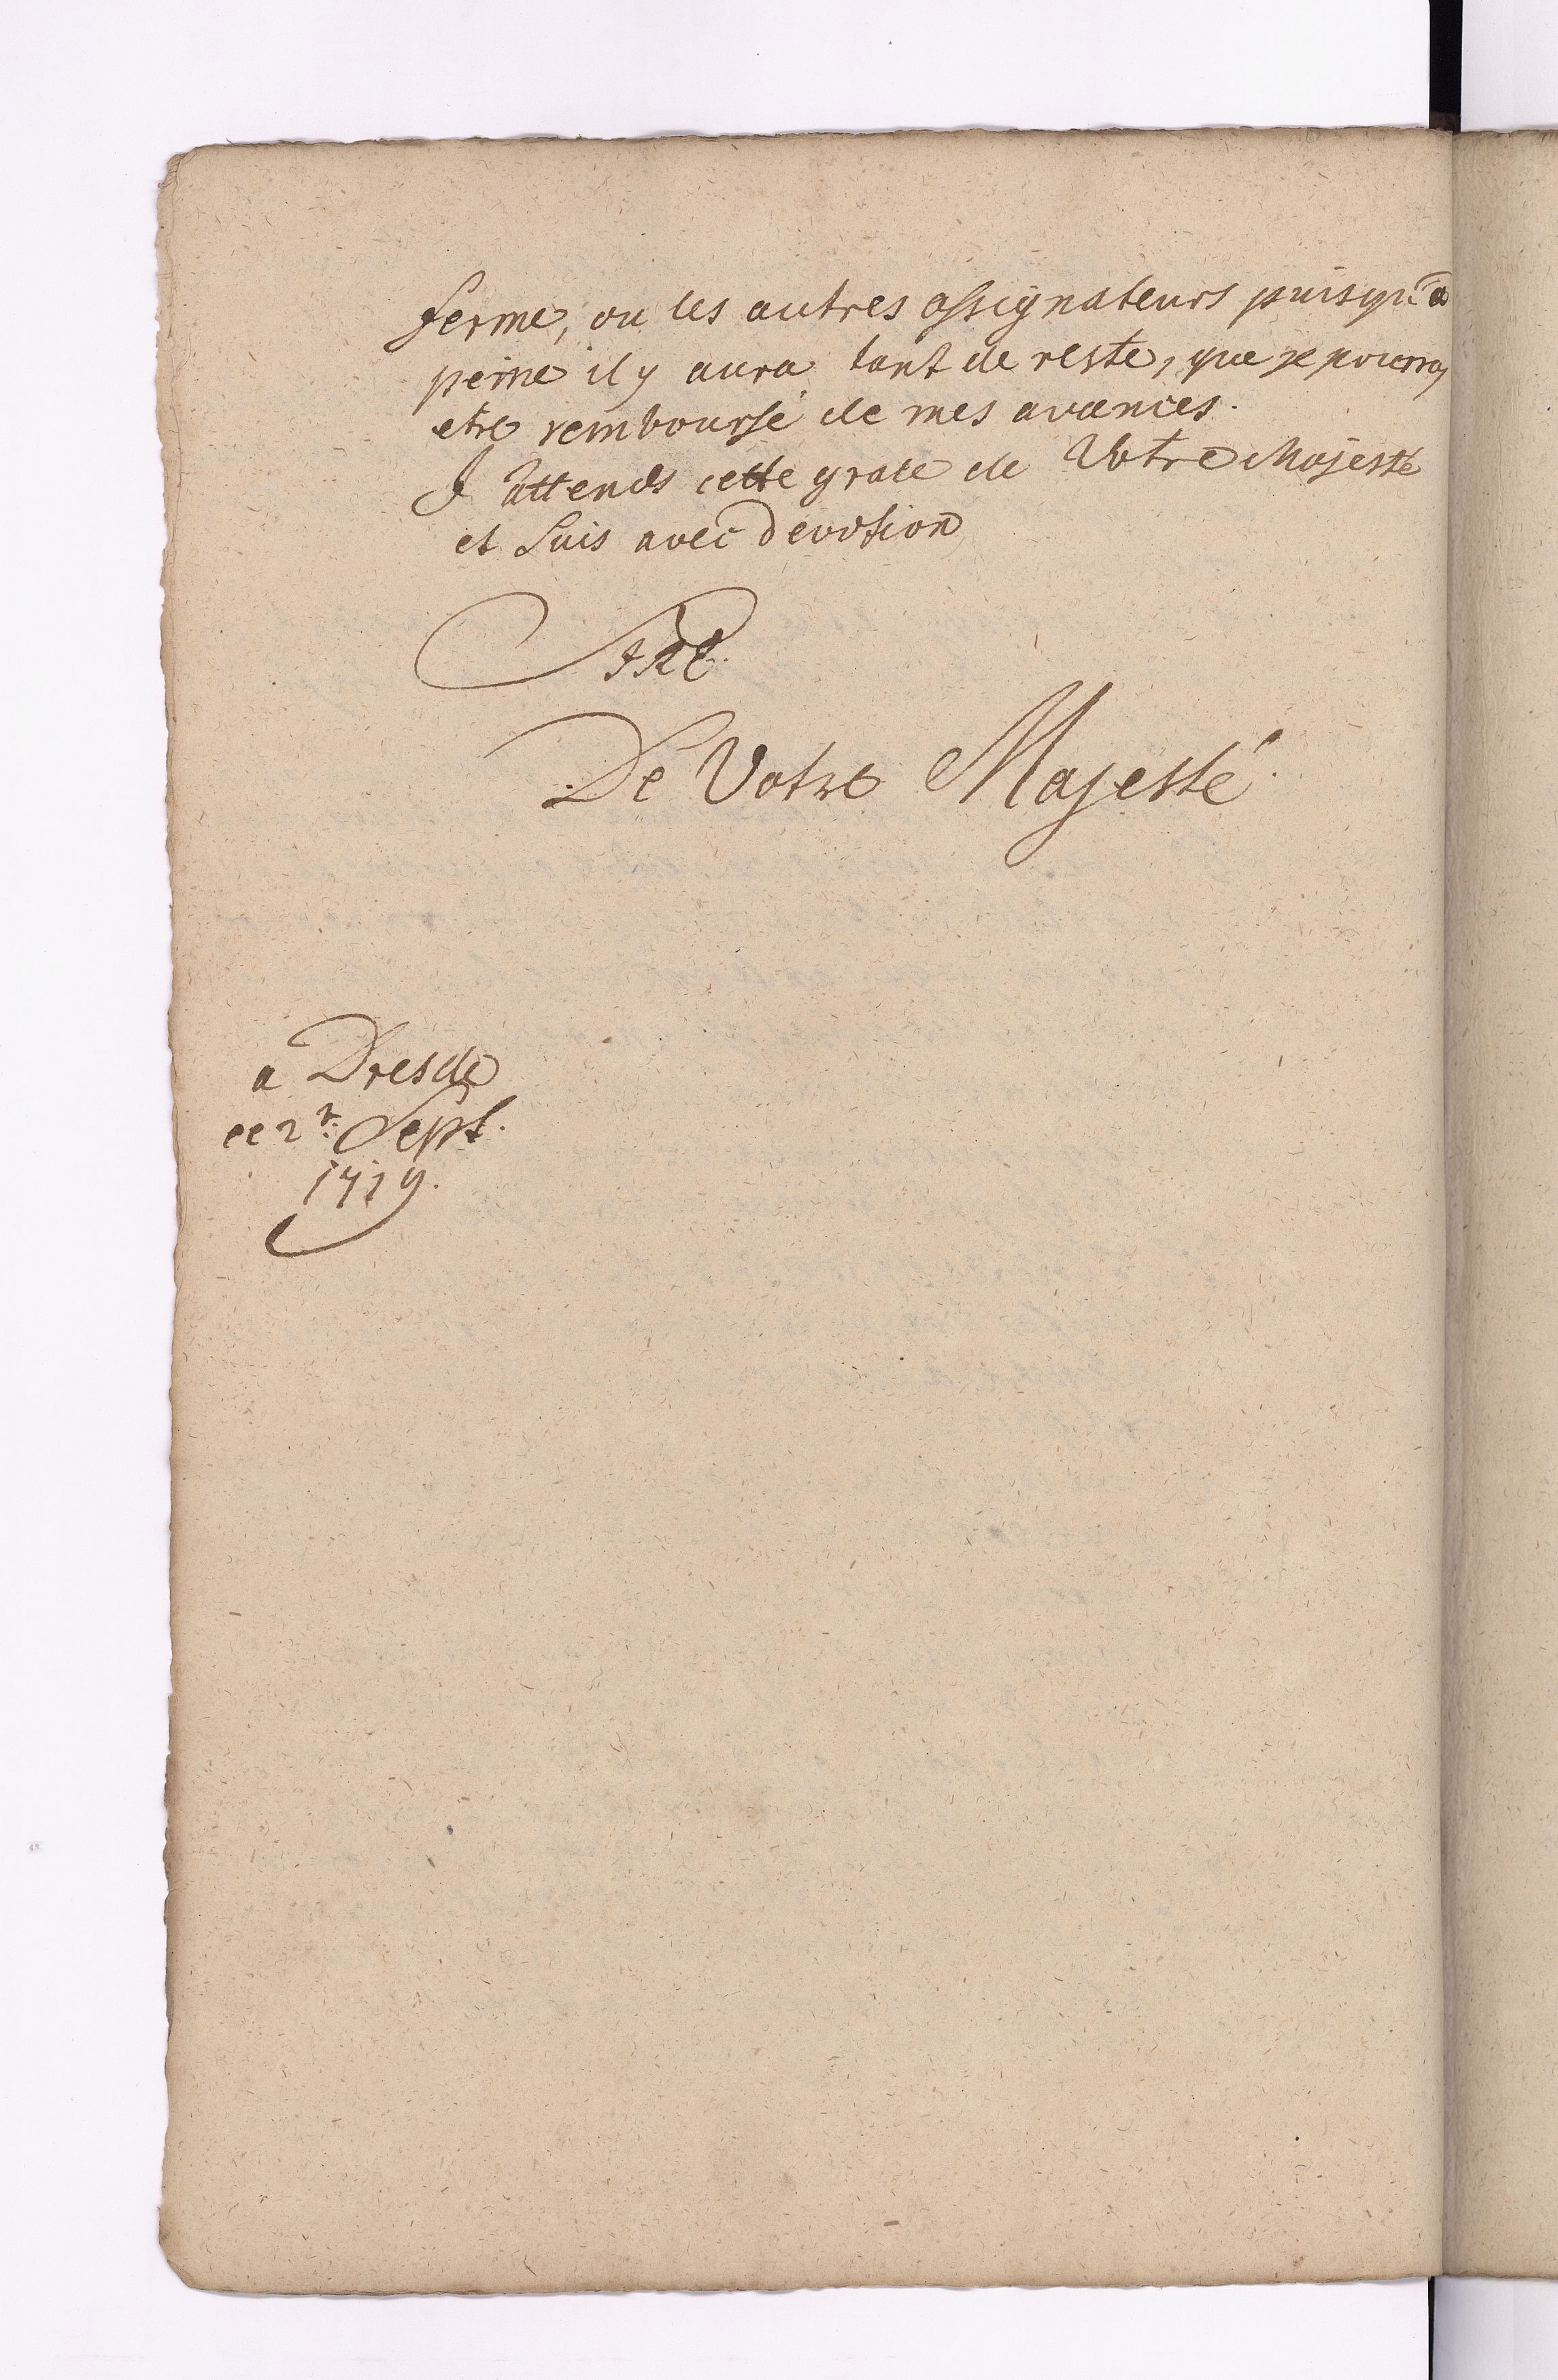 ferme, ou les autres assignateurs puisqu'a
peine il y aura tant de reste, que je pourray
etre remboursé de mes avances.
J'attends cette grace de Votre Majesté
et suis avec devotion
Sire
De Votre Majesté.
a Dresde
ce 2 Sept.
1719.